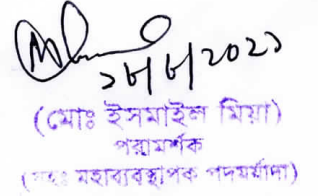 ১৮/৮/২০২১
(মোঃ ইসমাইল মিয়া)
পরামর্শক
(সহঃ মহাব্যবস্থাপক পদমর্যাদা)